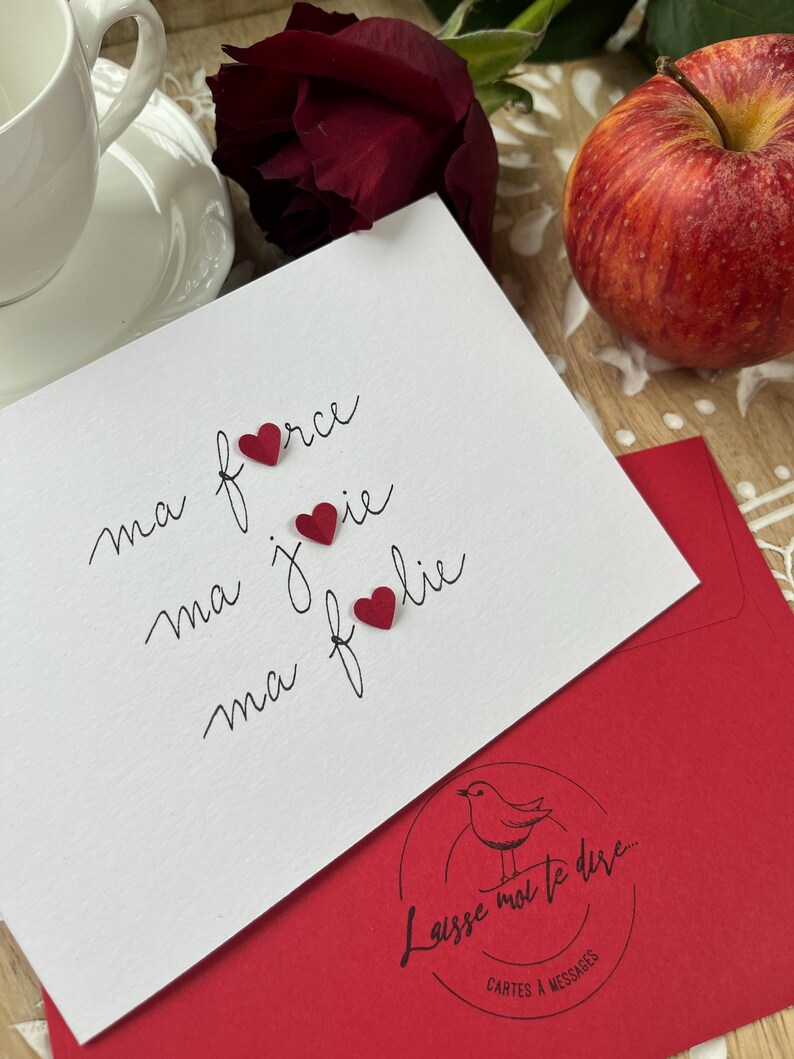 ma force
ma joie
ma folie
Laisse moi te dire...
CARTES À MESSAGES